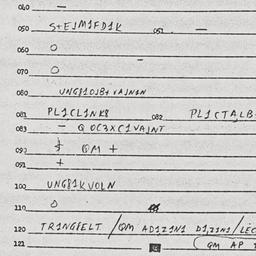 040 —
050 S+EJM1FD1K 051 —
060 O
070 O
080
081 PL1CL1NK8 082 PL1CTALB
083 — Q OC3XC1VAJNT
092 QM +
091 +
100 UNG81KVOLN
110 O
120 TR1NGFELT /QM AD1Z1N1 D1,Z1N1/LEC
121 (QM AP